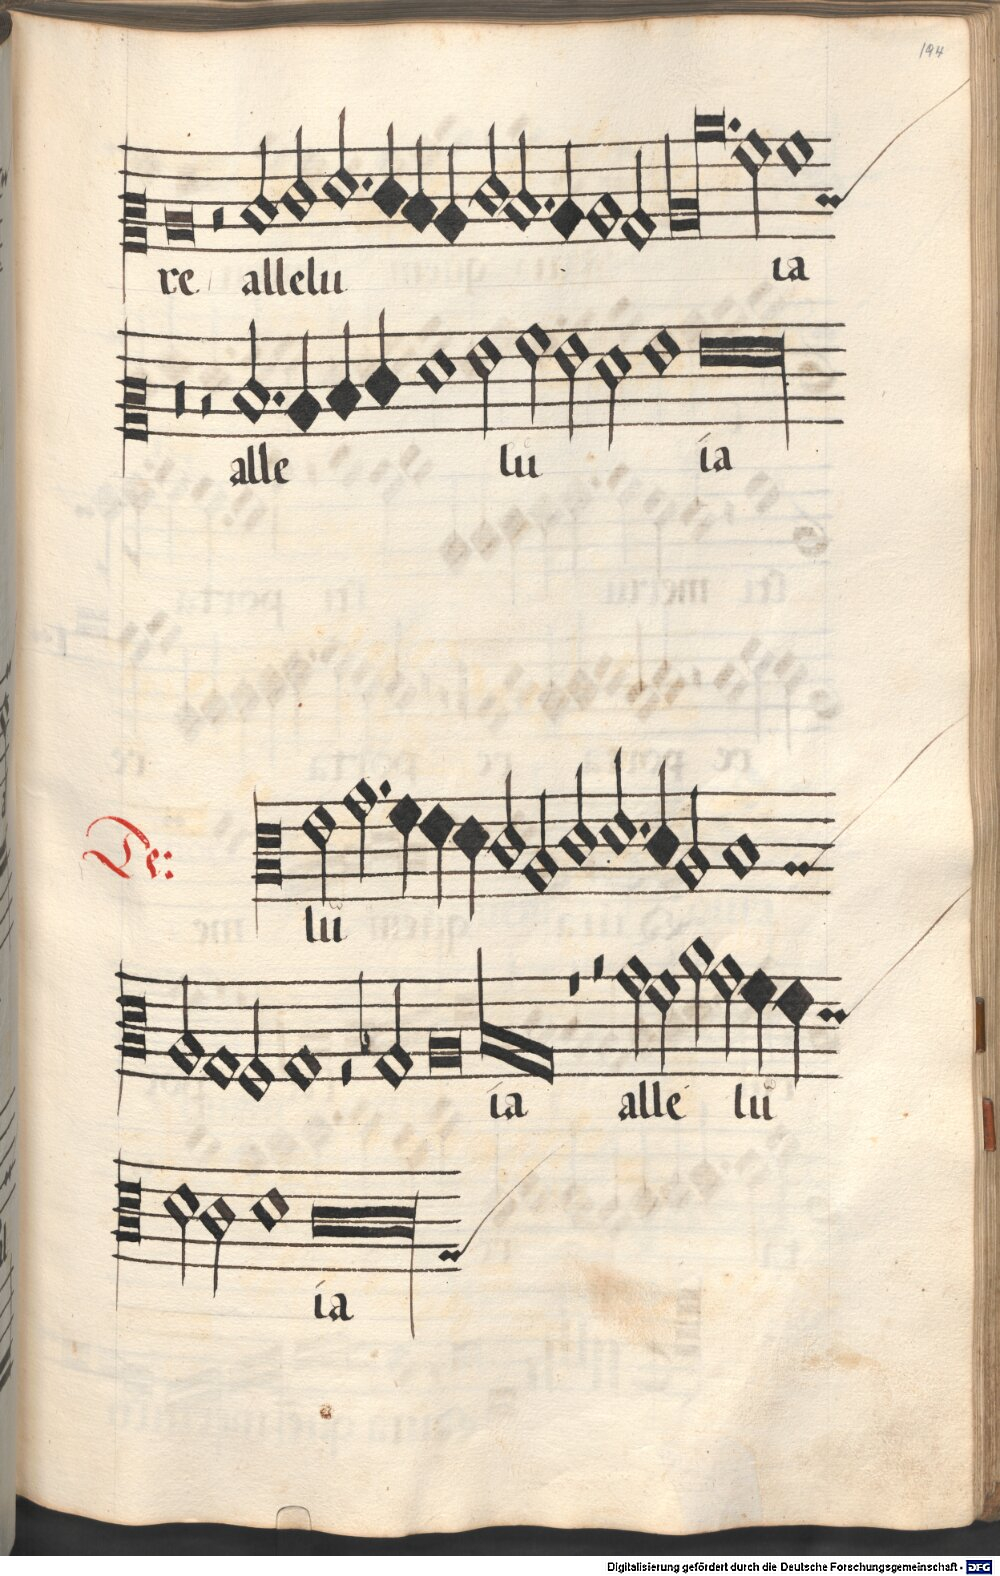 194
re allelu ia
alle lu ia
lu
ia alle lu
ia
Digitalisierung gefördert durch die Deutsche Forschungsgemeinschaft - DFG